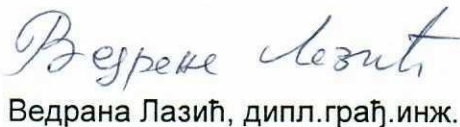 Ведрана Лазић
Ведрана Лазић, дипл.грађ.инж.